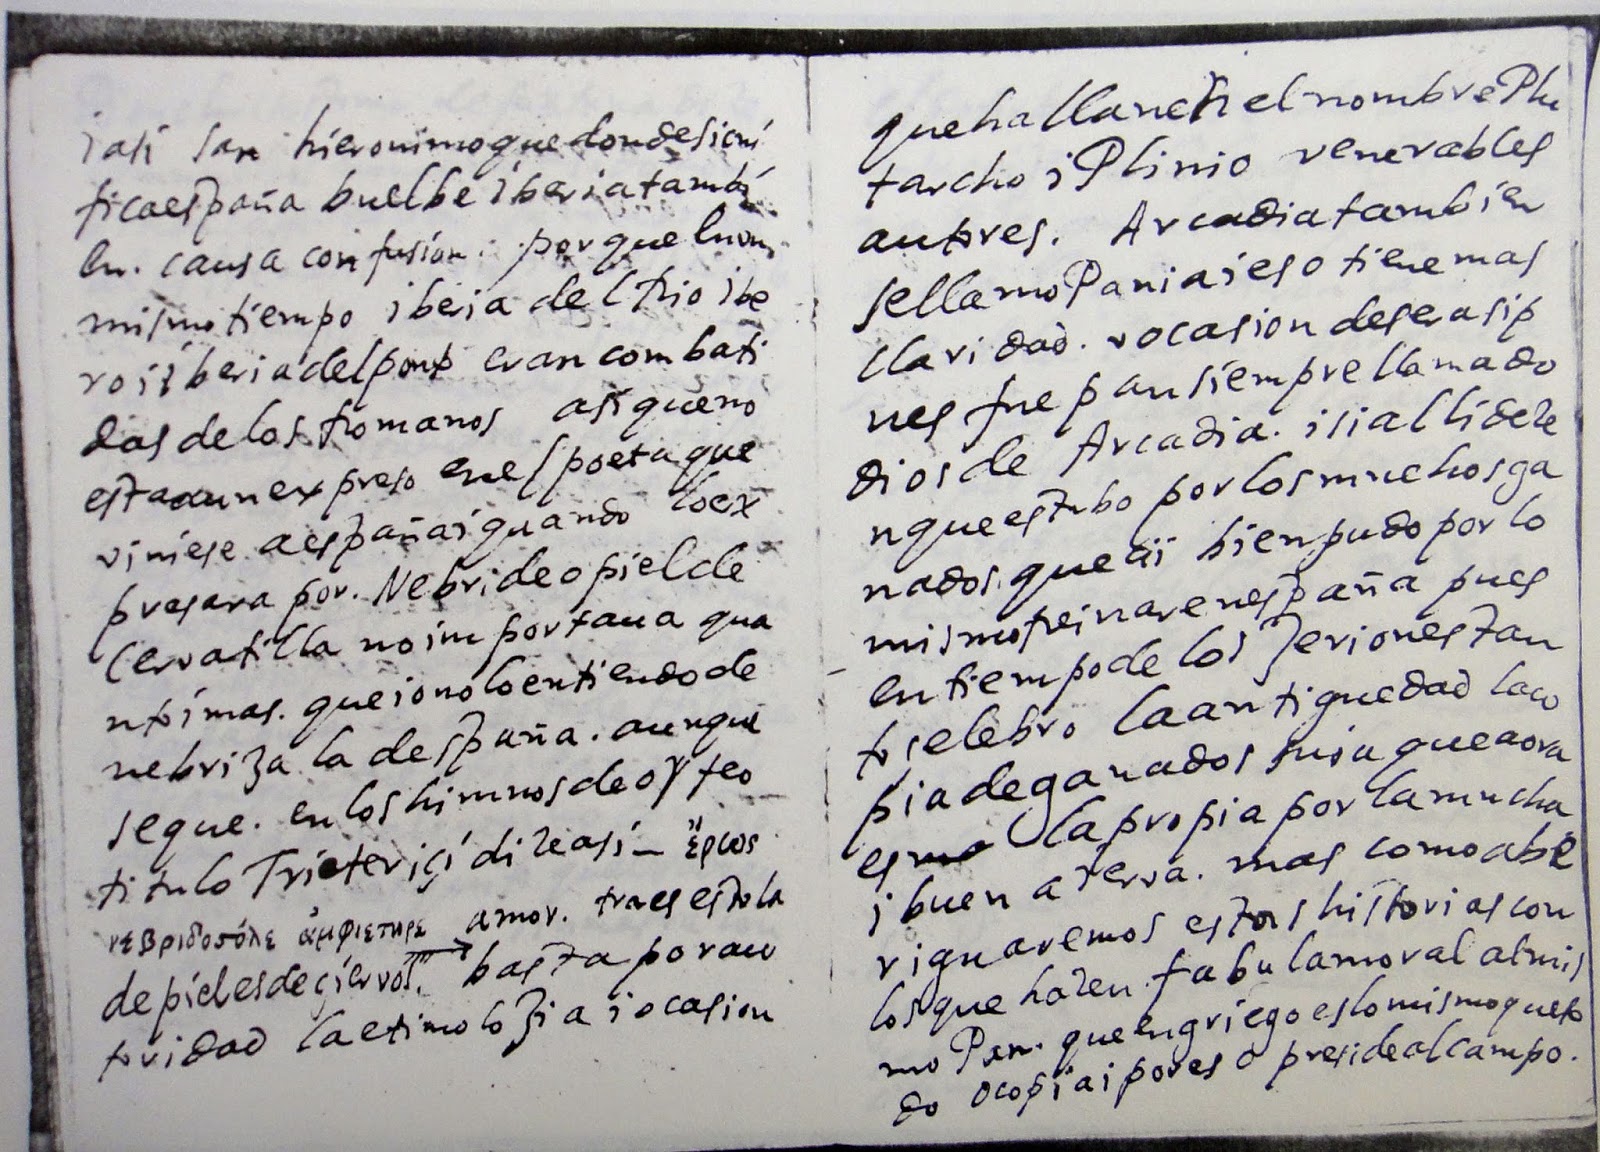 i asi san hieronimo que donde sicni
fica españa buelbe iberia tambi
en. causa confusion. porque en un
mismo tiempo iberia del Rio ibe
ro i iberia del ponto eran combati
das de los Romanos asi que no
esta aun expreso en el poeta que
viniese a españa i quando lo ex
presara por. Nebride o piel de
Cervatilla no importaua qua
nto i mas. que io no lo entiendo de
nebriza la de españa. aunque
se que. en los himnos de orfeo
titulo Trieterici dize asi— ἔρως
νεβριδοστόλε ἀμφιετηρε amor. traes estola
de pieles de çiervos. basta por au
toridad la etimolozia i ocasion
que hallaren el nombre Plu
tarcho i Plinio venerables
autores. Arcadia tambien
se llamo Pania i eso tiene mas
claridad. ocasion de ser asi p
ues fue pan siempre llamado
dios de Arcadia. i si alli deze
n que estubo por los muchos ga
nados. que ai bien pudo por lo
mismo Reinar en españa pues
en tiempo de los Jeriones tan
to selebro la antiguedad la co
pia de ganados suia que aora
es la propia por la mucha
i buena Terra. mas como abe
riguaremos estas historias con
los que hazen fabula moral al mis
mo Pan. que en griego es lo mismo que to
do o copia i por eso preside al campo.